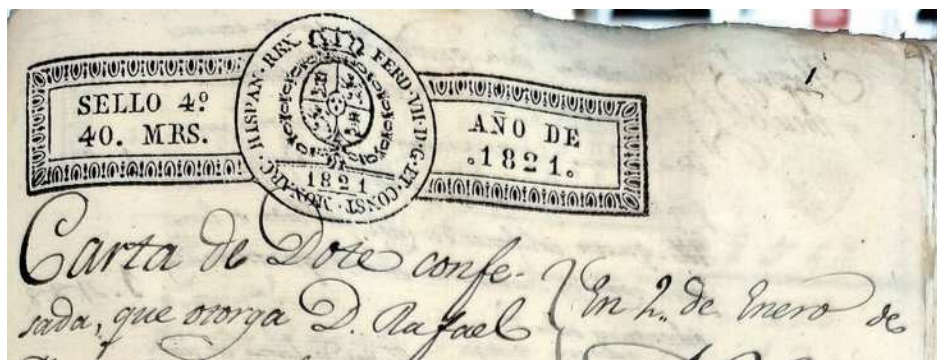 1
SELLO 4º
40. MRS.
FERD·VII·D·G·ET·CONST·MONARC·HISPAN·REX
1821
AÑO DE
1821.
Carta de Dote confe-
sada, que otorga D. Rafael
En 2,, de Enero de